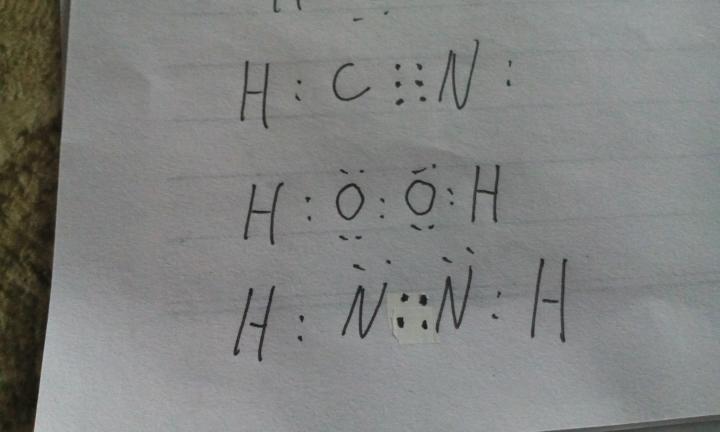 H : C ⫶⫶ N :
H : Ö : Ö : H
H : N̈ :: N̈ : H